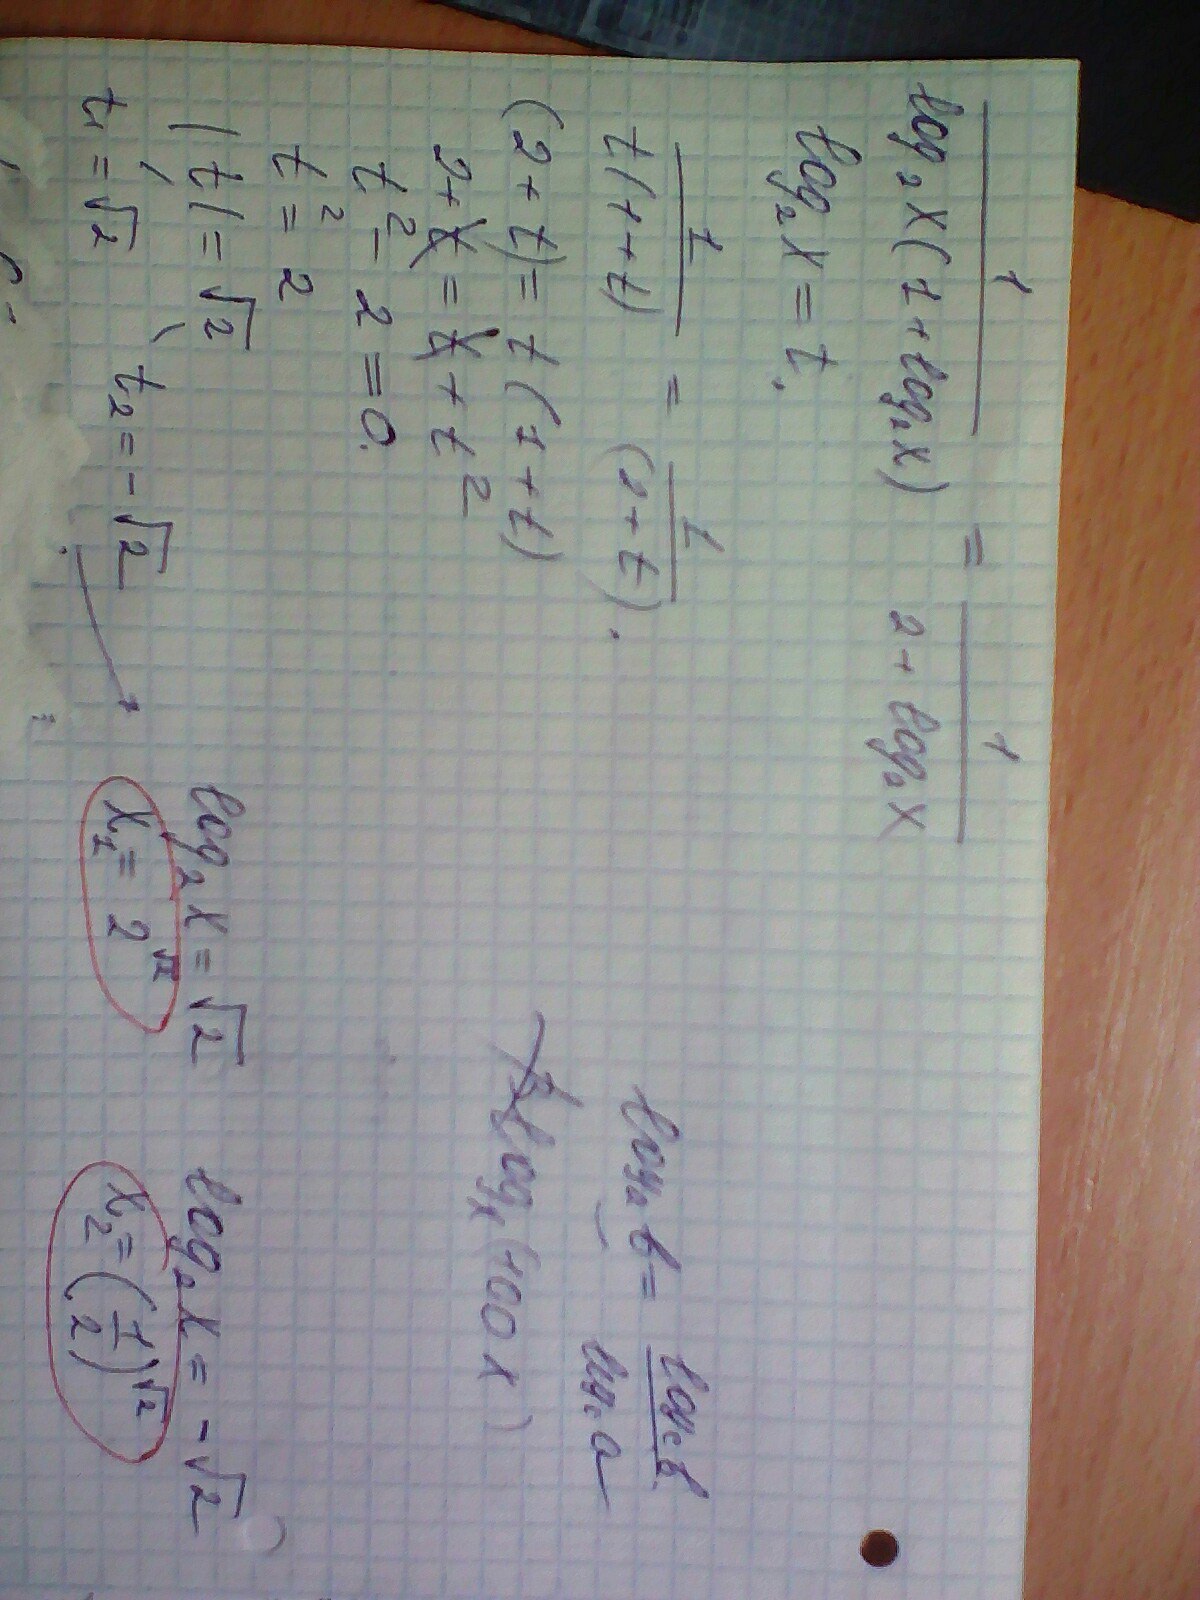 1/(log₂x(1+log₂x)) = 1/(2+log₂x)
log₂x = t.
1/(t(1+t)) = 1/(2+t).
(2+t) = t(1+t)
2+t = t+t²
t²-2=0.
t²=2
|t|=√2
t₁=√2 t₂=-√2
log₂x=√2
x₁=2^√2
log₂x=-√2
x₂=(1/2)^√2
logₐb = log_c b/log_c a
logₓ(100x)